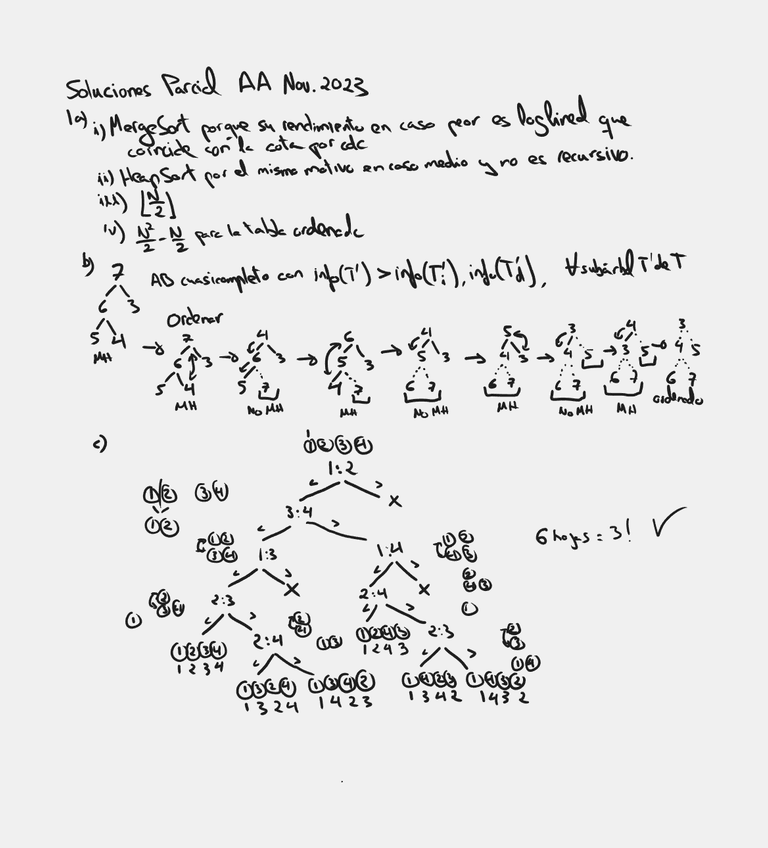 Soluciones Parcial AA Nov. 2023
1a) i) MergeSort porque su rendimiento en caso peor es loglineal que
coincide con la cota por cdc
ii) HeapSort por el mismo motivo en caso medio y no es recursivo.
iii) ⌊N/2⌋
iv) N²/2 - N/2 para la tabla ordenada
b) AB cuasicompleto con info(T') > info(T'i), info(T'd), ∀ subárbol T' de T
7
6 3
5 4
MH
Ordenar
→ 7 → 4 → 6 → 4 → 5 → 3 → 4 → 3
6 3 6 3 5 3 5 3 4 3 4 5 3 5 4 5
5 4 5 7 4 7 6 7 6 7 6 7 6 7 6 7
MH No MH MH No MH MH No MH MH ordenado
c)
① ② ③ ④
1:2
< >
①/② ③④
①②
3:4 x
< >
6 hojas = 3! ✓
①② ③④
1:3 1:4
①② ④③
< > < >
2:3 x 2:4 x
② ④③
①
② ③④
①
< > < >
①②③④
1 2 3 4
2:4
② ④
①③
①②④③
1 2 4 3
2:3
② ③
①④
< > < >
①③②④ ①③④② ①④②③ ①④③②
1 3 2 4 1 4 2 3 1 3 4 2 1 4 3 2